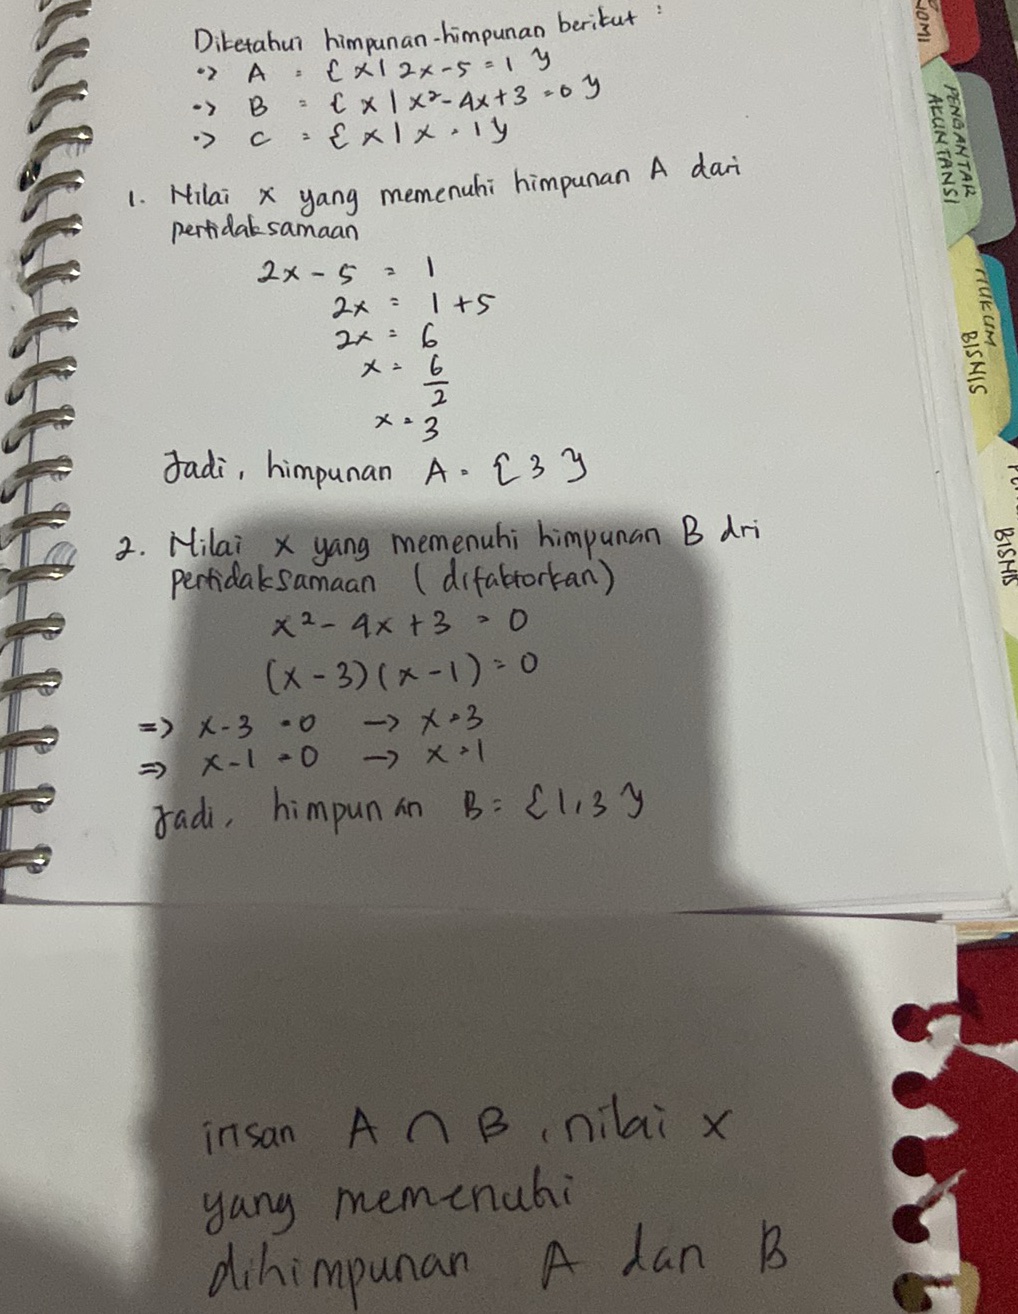 Diketahui himpunan-himpunan berikut :
•> A = { x | 2x - 5 = 1 }
•> B = { x | x² - 4x + 3 = 0 }
•> C = { x | x = 1 }
1. Nilai x yang memenuhi himpunan A dari
pertidaksamaan
2x - 5 = 1
2x = 1 + 5
2x = 6
x = 6/2
x = 3
Jadi, himpunan A = { 3 }
2. Nilai x yang memenuhi himpunan B dri
pertidaksamaan (difaktorkan)
x² - 4x + 3 = 0
(x - 3)(x - 1) = 0
=> x - 3 = 0 -> x = 3
=> x - 1 = 0 -> x = 1
Jadi, himpunan B = { 1, 3 }
irisan A ∩ B, nilai x
yang memenuhi
dihimpunan A dan B
PENGANTAR
AKUNTANSI
HUKUM
BISNIS
BISNIS